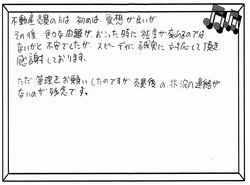 不動産売買のらは 初めは、愛想が良いが
その後 色々な問題が、おこった時に 態度が変わるのでは
ないかと不安でしたが スピーディに 誠実に 対応して頂き
感謝しております。
ただ 管理をお願いしたのですが 売買後の、状況の連絡が
ないのが 残念です。